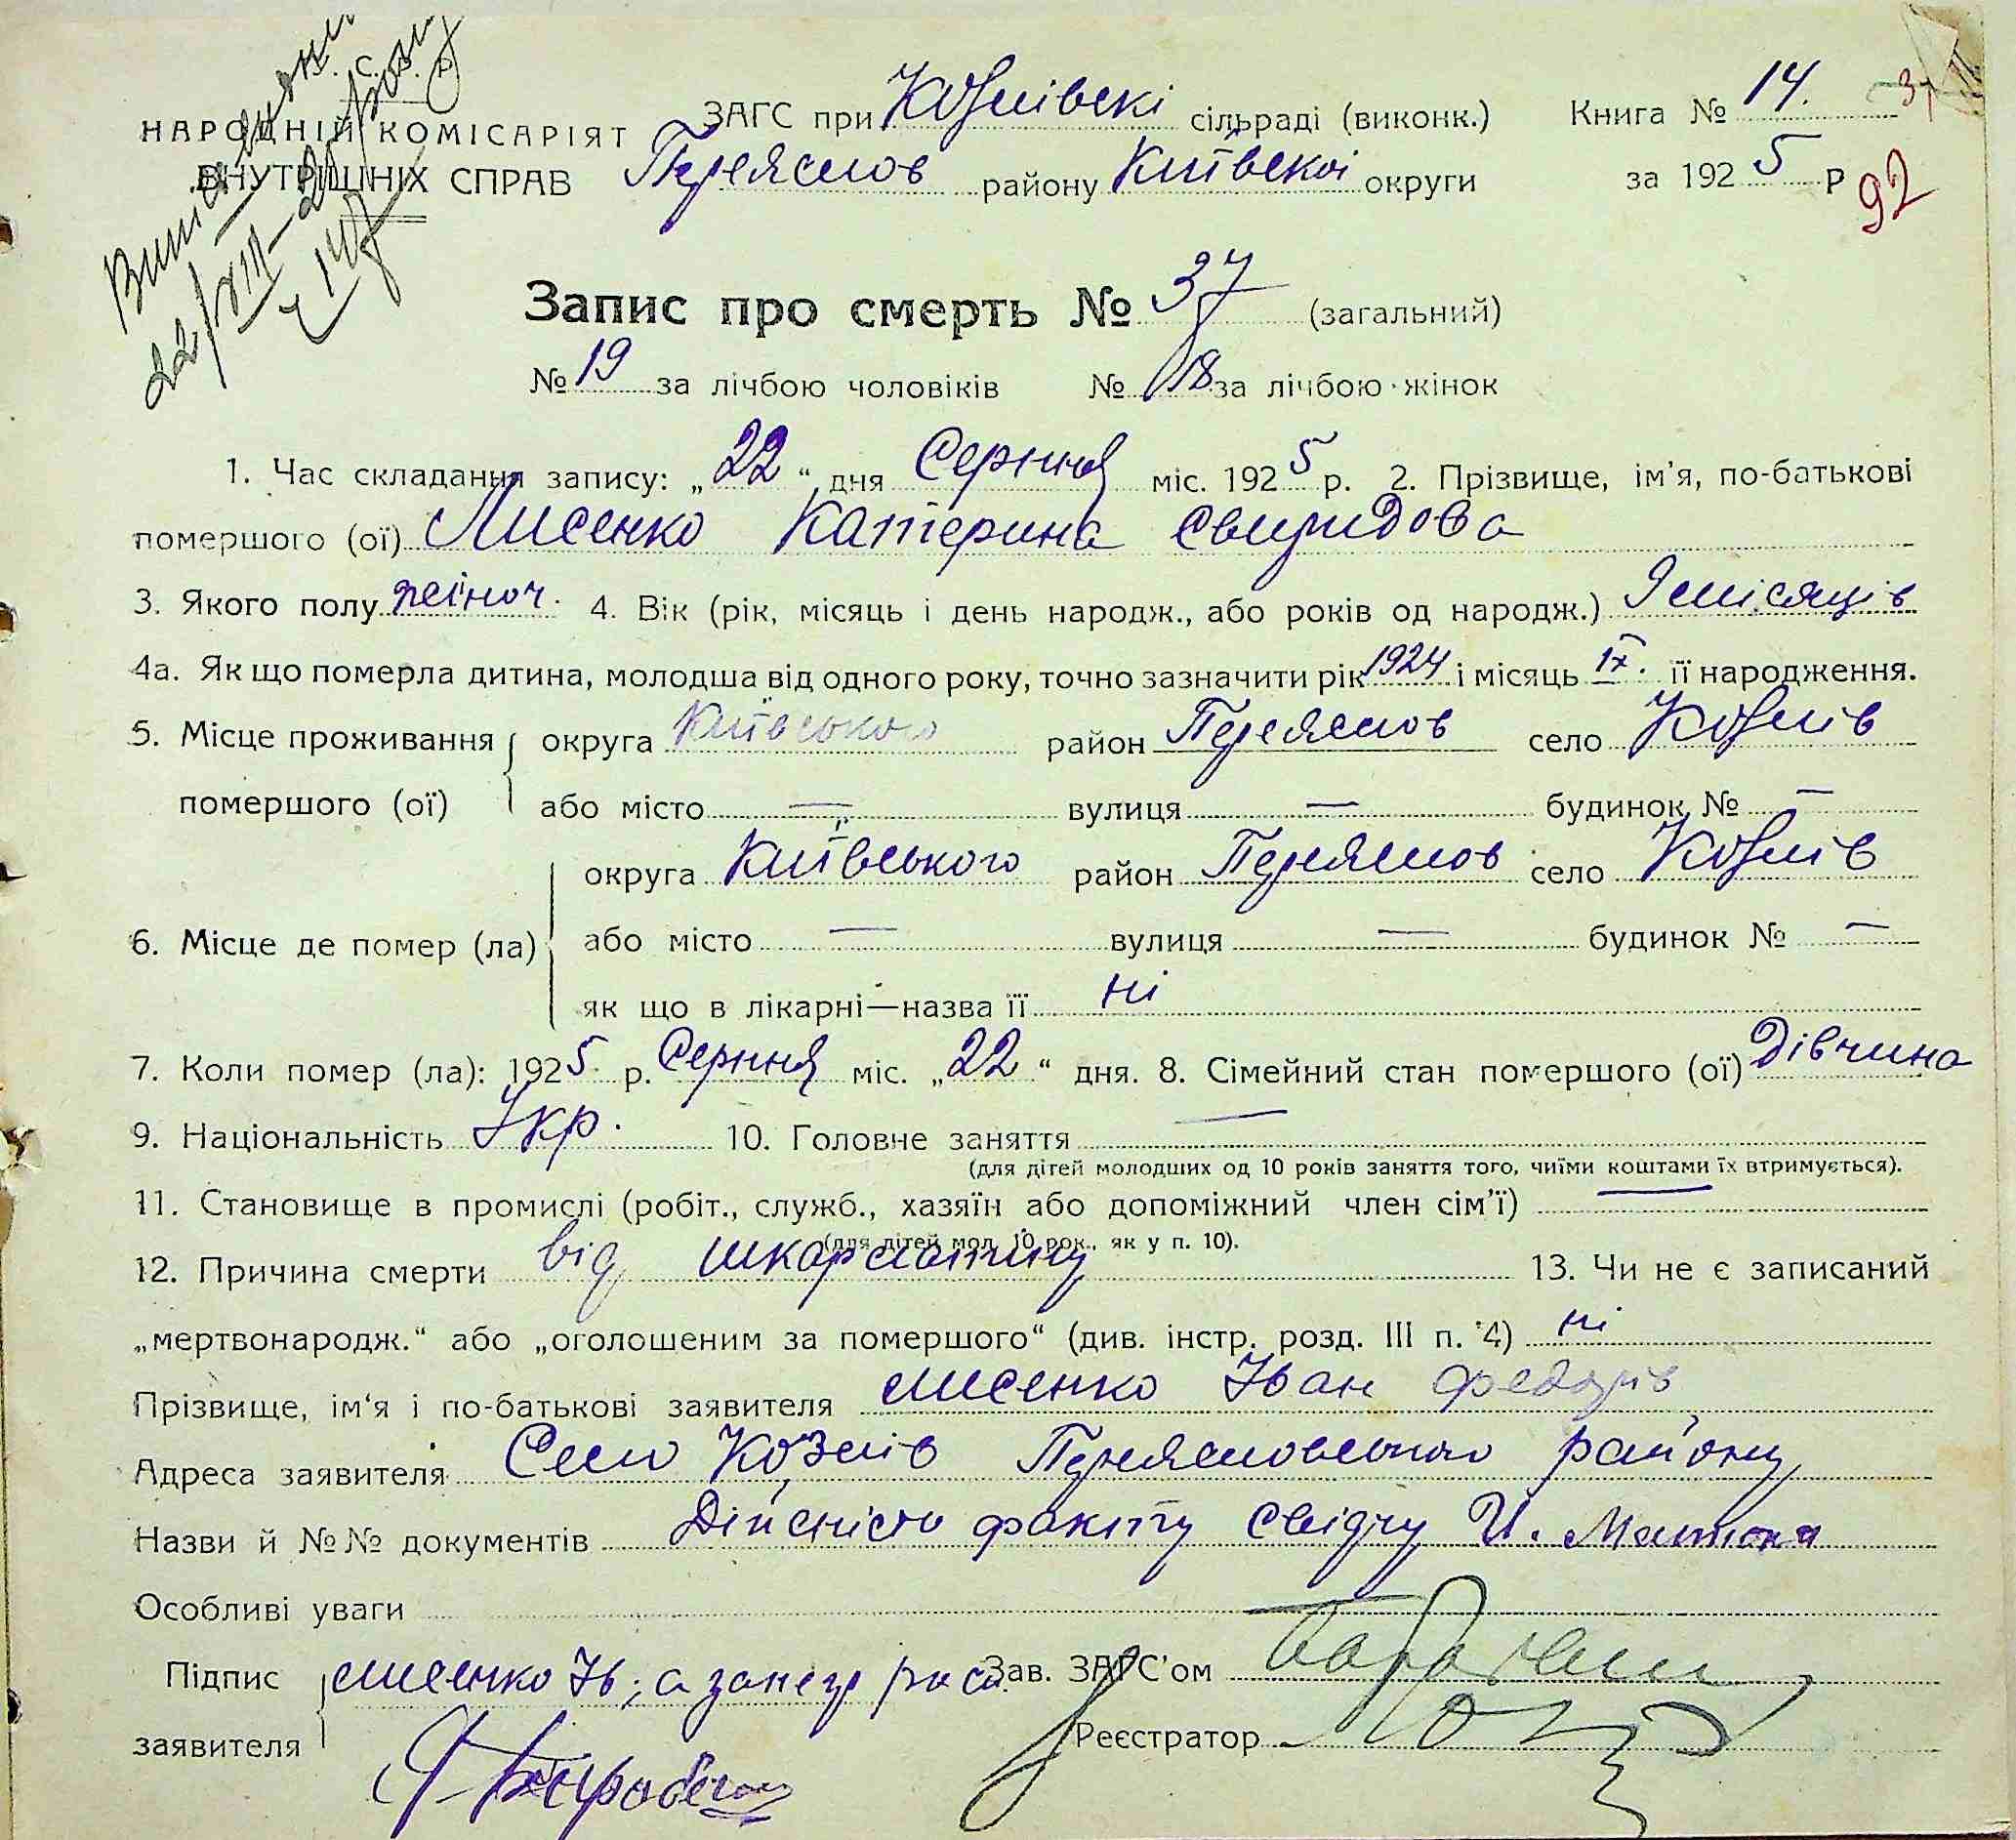 НАРОДНІЙ КОМІСАРІЯТ
ВНУТРІШНІХ СПРАВ
ЗАГС при Козлівскі сільраді (виконк.)
Переяслов району Київскої округи
Книга № 14.
за 1925 р
92
Запис про смерть № 37 (загальний)
№ 19 за лічбою чоловіків № 18 за лічбою жінок
1. Час складання запису: „22“ дня Серпня міс. 1925 р. 2. Прізвище, ім'я, по-батькові
помершого (ої) Лисенко Катерина Свиридова
3. Якого полу жіноч. 4. Вік (рік, місяць і день народж., або років од народж.) 9 місяців
4а. Як що померла дитина, молодша від одного року, точно зазначити рік 1924 і місяць IX. її народження.
5. Місце проживання округа Київського район Переяслов село Козлів
помершого (ої) або місто — вулиця — будинок № —
округа Київського район Переяслов село Козлів
6. Місце де помер (ла) або місто — вулиця — будинок № —
як що в лікарні—назва її ні
7. Коли помер (ла): 1925 р. Серпня міс. „22“ дня. 8. Сімейний стан помершого (ої) Дівчина
9. Національність Укр. 10. Головне заняття —
(для дітей молодших од 10 років заняття того, чиїми коштами їх втримується).
11. Становище в промислі (робіт., служб., хазяїн або допоміжний член сім'ї) —
(для дітей мол. 10 рок., як у п. 10).
12. Причина смерти від шкарлатину 13. Чи не є записаний
„мертвонародж.“ або „оголошеним за помершого“ (див. інстр. розд. III п. 4) ні
Прізвище, ім'я і по-батькові заявителя Лисенко Іван Федорів
Адреса заявителя Село Козлів Переясловського району
Назви й №№ документів Дійсність факту свідчу
Особливі уваги
Підпис Лисенко Ів; а за негр рос. Зав. ЗАГС'ом
заявителя Реєстратор